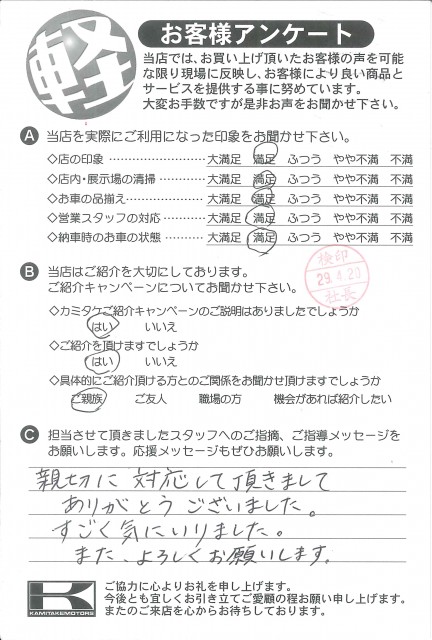 軽
お客様アンケート
当店では、お買い上げ頂いたお客様の声を可能
な限り現場に反映し、お客様により良い商品と
サービスを提供する事に努めています。
大変お手数ですが是非お声をお聞かせ下さい。
A 当店を実際にご利用になった印象をお聞かせ下さい。
◇店の印象 ………………… 大満足 満足 ふつう やや不満 不満
◇店内・展示場の清掃 ………… 大満足 満足 ふつう やや不満 不満
◇お車の品揃え ……………… 大満足 満足 ふつう やや不満 不満
◇営業スタッフの対応 ………… 大満足 満足 ふつう やや不満 不満
◇納車時のお車の状態 ………… 大満足 満足 ふつう やや不満 不満
B 当店はご紹介を大切にしております。
ご紹介キャンペーンについてお聞かせ下さい。
検印
29.4.20
社長
◇カミタケご紹介キャンペーンのご説明はありましたでしょうか
はい いいえ
◇ご紹介を頂けますでしょうか
はい いいえ
◇具体的にご紹介頂ける方とのご関係をお聞かせ頂けますでしょうか
ご親族 ご友人 職場の方 機会があれば紹介したい
C 担当させて頂きましたスタッフへのご指摘、ご指導メッセージを
お願いします。応援メッセージもぜひお願いします。
親切に対応して頂きまして
ありがとうございました。
すごく気にいりました。
また、よろしくお願いします。
K
KAMITAKEMOTORS
ご協力に心よりお礼を申し上げます。
今後とも宜しくお引き立てご愛顧の程お願い申し上げます。
またのご来店を心からお待ちしております。